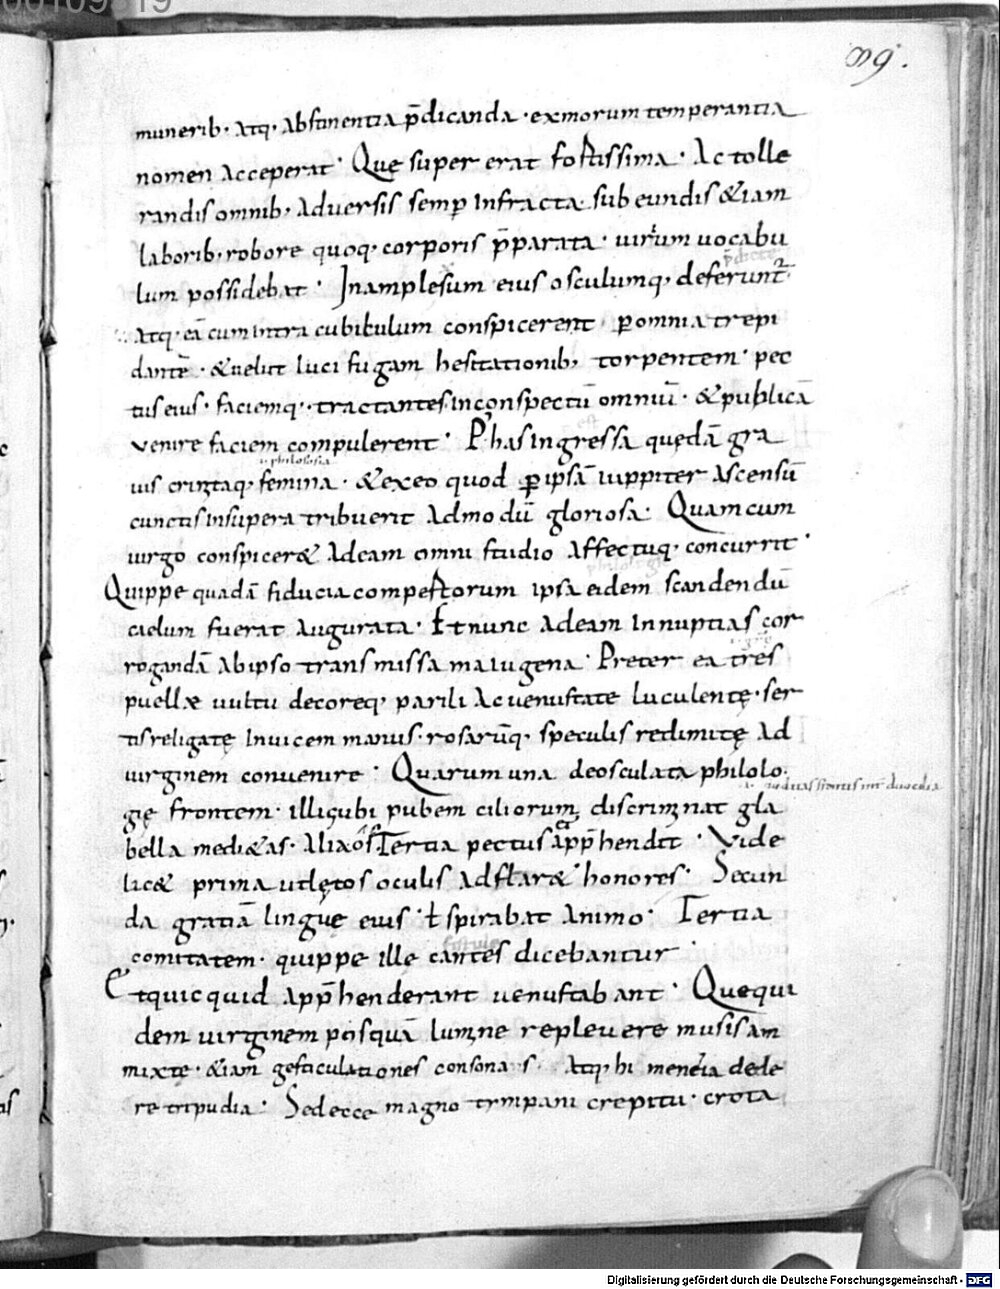 99.
munerib· atq· abstinentia p̄dicanda · ex morum temperantia
nomen acceperat · Quę super erat fortissima · Ac tolle
randis omnib· aduersis semp infracta · sub eundis &iam
laborib· robore quoq· corporis p̄parata · uirium uocabu
lum possidebat · In amplexum eius osculumq· deferunt᷑
atq· eā cum intra cubiculum conspicerent · ꝑ omnia trepi
dantē · & uelut luci fugam hesitationib· torpentem · pec
tus eius · faciemq· tractantes in conspectū omniū · & publicā
venire faciem compulerent · P has ingressa quędā gra
philosofia
uis crinitaq· femina · & ex eo quod ꝑ ipsā iuppiter ascensū
cunctis in supera tribuerit admodū gloriosa · Quam cum
uirgo conspicer& ad eam omni studio affectuq· concurrit ·
philologie
Quippe quadā fiducia compertorum ipsa eidem scandendū
caelum fuerat augurata · Et nunc ad eam in nuptias cor
rogandā ab ipso transmissa maiugena · Preter ea tres
puellæ uultu decoreq· parili ac uenustate luculentę · ser
tis religatę inuicem manus · rosarūq· speculis redimitę ad
uirginem conuenire · Quarum una deosculata philolo
gię frontem · illic ubi pubem ciliorum discriminat gla
bella medi&as · Alia os Tertia pectus app̄hendit · Vide
lic& prima ut lętos oculis adflar& honores · Secun
da gratiā linguę eius · t̄ spirabat animo · Tertia
comitatem · quippe ille cantes dicebantur ·
Et quicquid app̄henderant uenustabant · Quę qui
dem uirginem posquā lumine repleuere musis am
mixtę · &iam gesticulationes consonas · atq· himeneia dede
re tripudia · Sed ecce magno tympani crepitu · crota
Digitalisierung gefördert durch die Deutsche Forschungsgemeinschaft - DFG